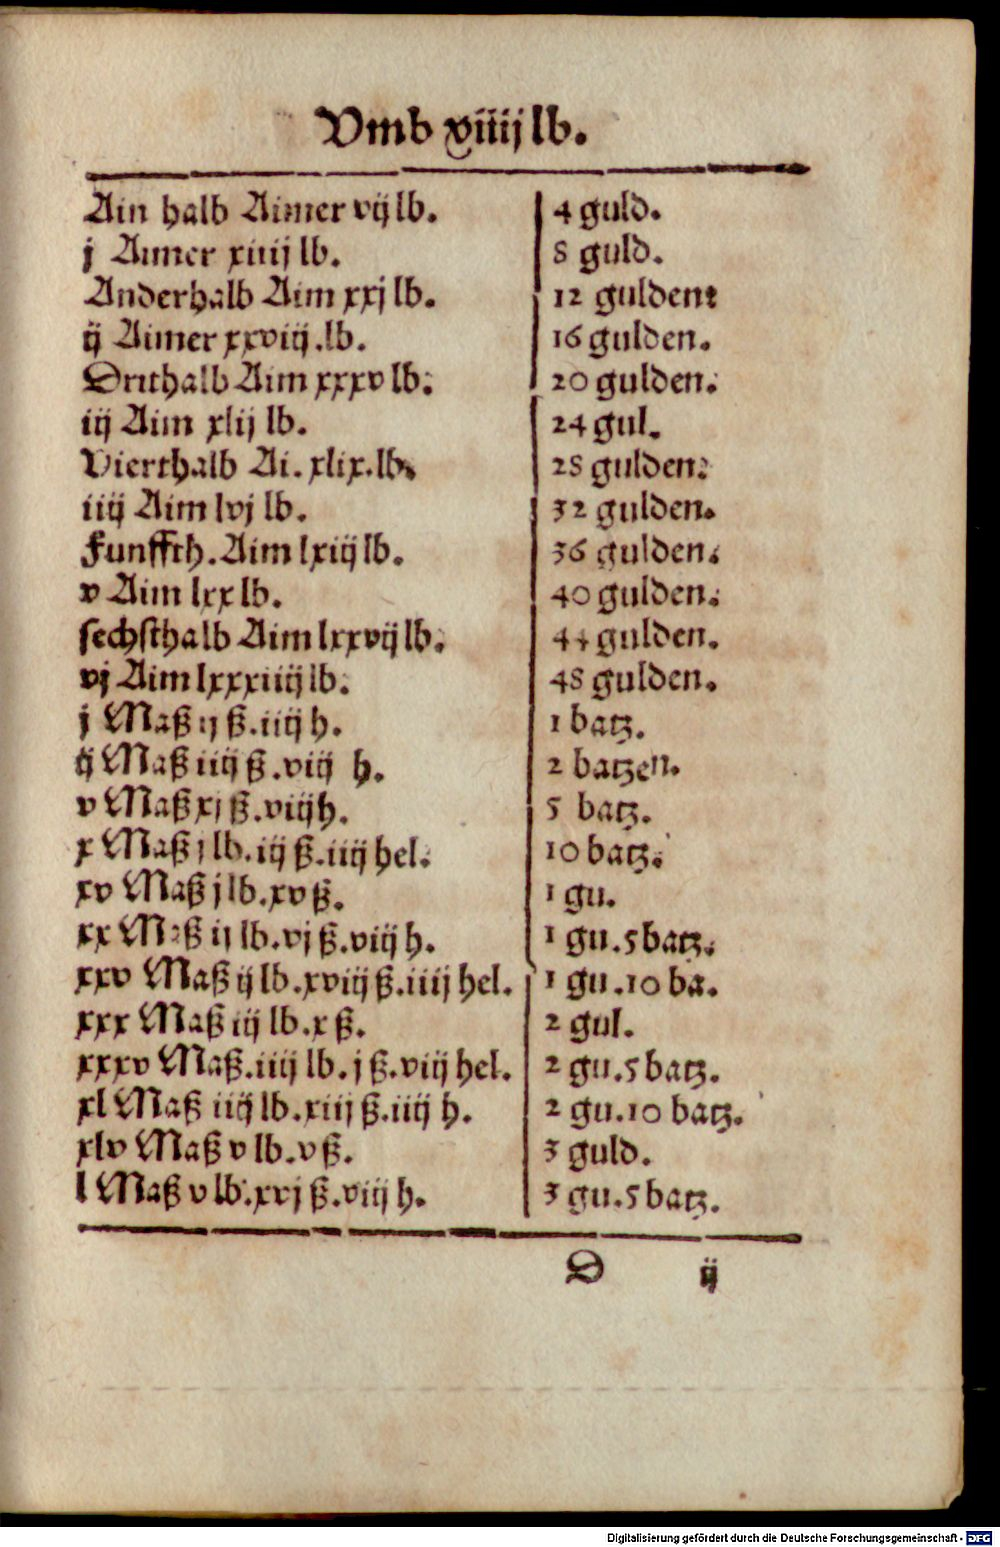 Vmb xiiij lb.
Ain halb Aimer vij lb. 4 guld.
j Aimer xiiij lb. 8 guld.
Anderhalb Aim xxj lb. 12 gulden:
ij Aimer xxviij .lb. 16 gulden.
Drithalb Aim xxxv lb. 20 gulden.
iij Aim xlij lb. 24 gul.
Vierthalb Ai. xlix. lb. 28 gulden.
iiij Aim lvj lb. 32 gulden.
Funffth. Aim lxiij lb. 36 gulden.
v Aim lxx lb. 40 gulden.
sechsthalb Aim lxxvij lb. 44 gulden.
vj Aim lxxxiiij lb. 48 gulden.
j Maß ij ß. iiij h. 1 batz.
ij Maß iiij ß. viij h. 2 batzen.
v Maß xj ß. viij h. 5 batz.
x Maß j lb. iij ß. iiij hel. 10 batz.
xv Maß j lb. xv ß. 1 gu.
xx Maß ij lb. vj ß. viij h. 1 gu. 5 batz.
xxv Maß ij lb. xviij ß. iiij hel. 1 gu. 10 ba.
xxx Maß iij lb. x ß. 2 gul.
xxxv Maß. iiij lb. j ß. viij hel. 2 gu. 5 batz.
xl Maß iiij lb. xiij ß. iiij h. 2 gu. 10 batz.
xlv Maß v lb. v ß. 3 guld.
l Maß v lb. xvj ß. viij h. 3 gu. 5 batz.
D ij
Digitalisierung gefördert durch die Deutsche Forschungsgemeinschaft - DFG